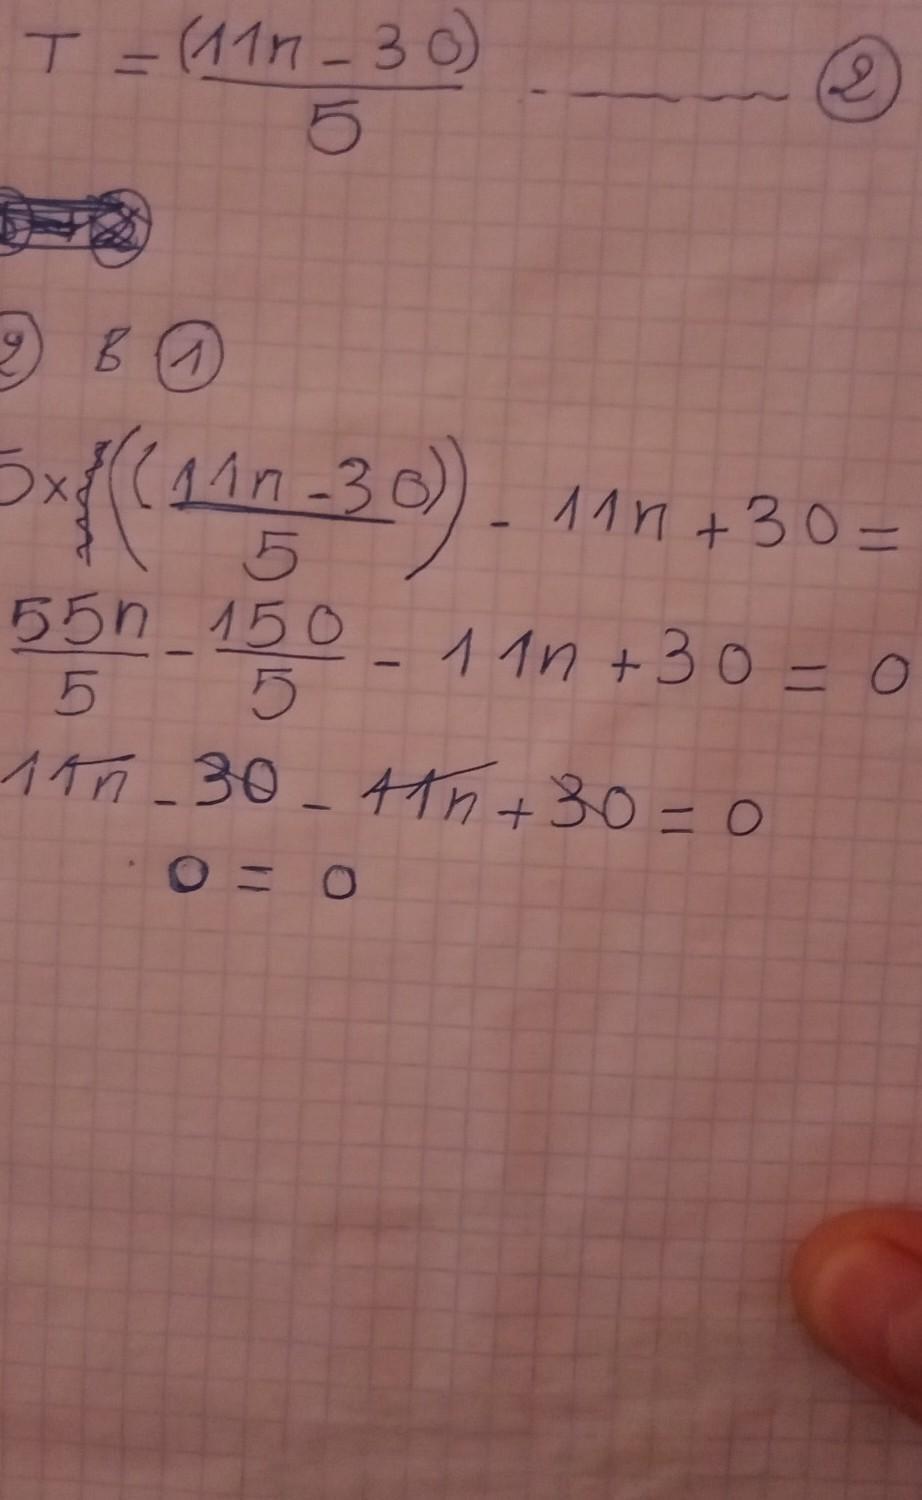 T = (11n - 30)/5 ------ ②
② в ①
5 x ((11n - 30)/5) - 11n + 30 =
55n/5 - 150/5 - 11n + 30 = 0
11n - 30 - 11n + 30 = 0
0 = 0